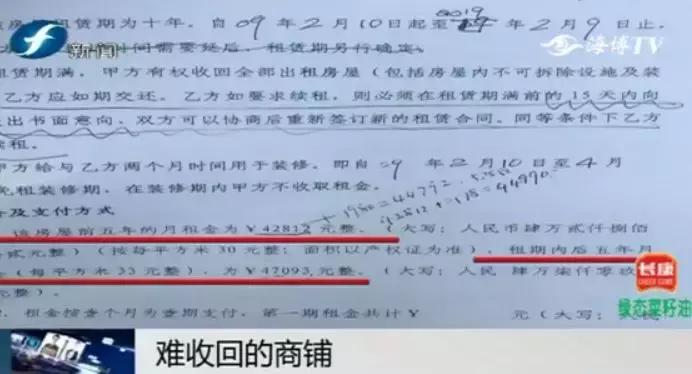 新闻
海博TV
租赁期为十年。自09年2月10日起至2019年2月9日止。
时间需要延后，租赁期另行确定。
租赁期满，甲方有权收回全部出租房屋（包括房屋内不可拆除设施及装
乙方应如期交还。乙方如要求续租，则必须在租赁期满前的15天内向
出书面意向，双方可以协商后重新签订新的租赁合同。同等条件下乙方
续租。
方给与乙方两个月时间用于装修。即自09年2月10日至4月
免租装修期，在装修期内甲方不收取租金。
及支付方式
+1980=44792
42812+178=44990
该房屋前五年的月租金为￥42812元整。（大写：人民币肆万贰仟捌佰
贰元整）（按每平方米30元整；面积以产权证为准），租期内后五年月
（每平方米33元整），为￥47093元整。（大写：人民 肆万柒仟零玖
元整）。
租金按壹个月为壹期支付，第一期租金共计￥ 元（大写：
长康
绿态菜籽油
难收回的商铺